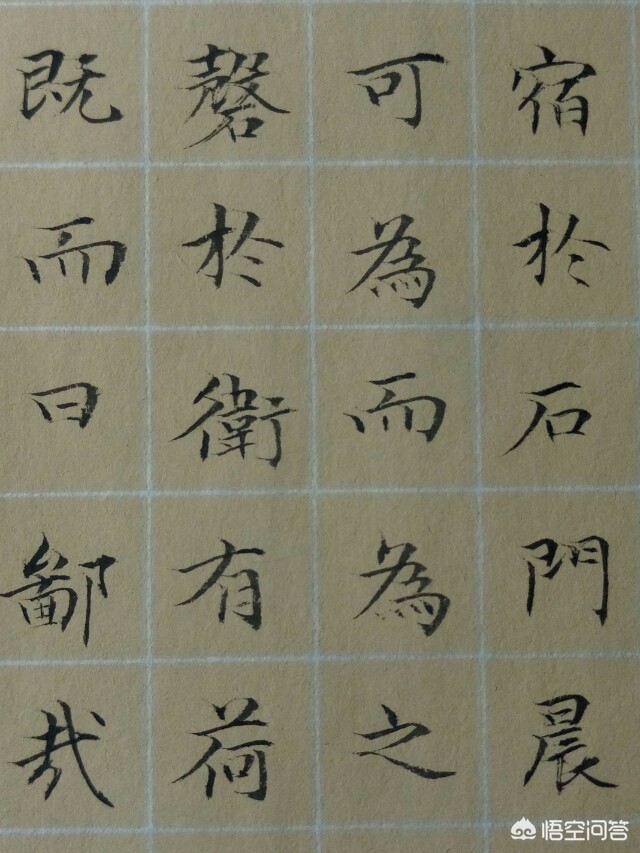 宿於石門晨
可為而為之
磬於衛有荷
既而曰鄙哉
悟空问答